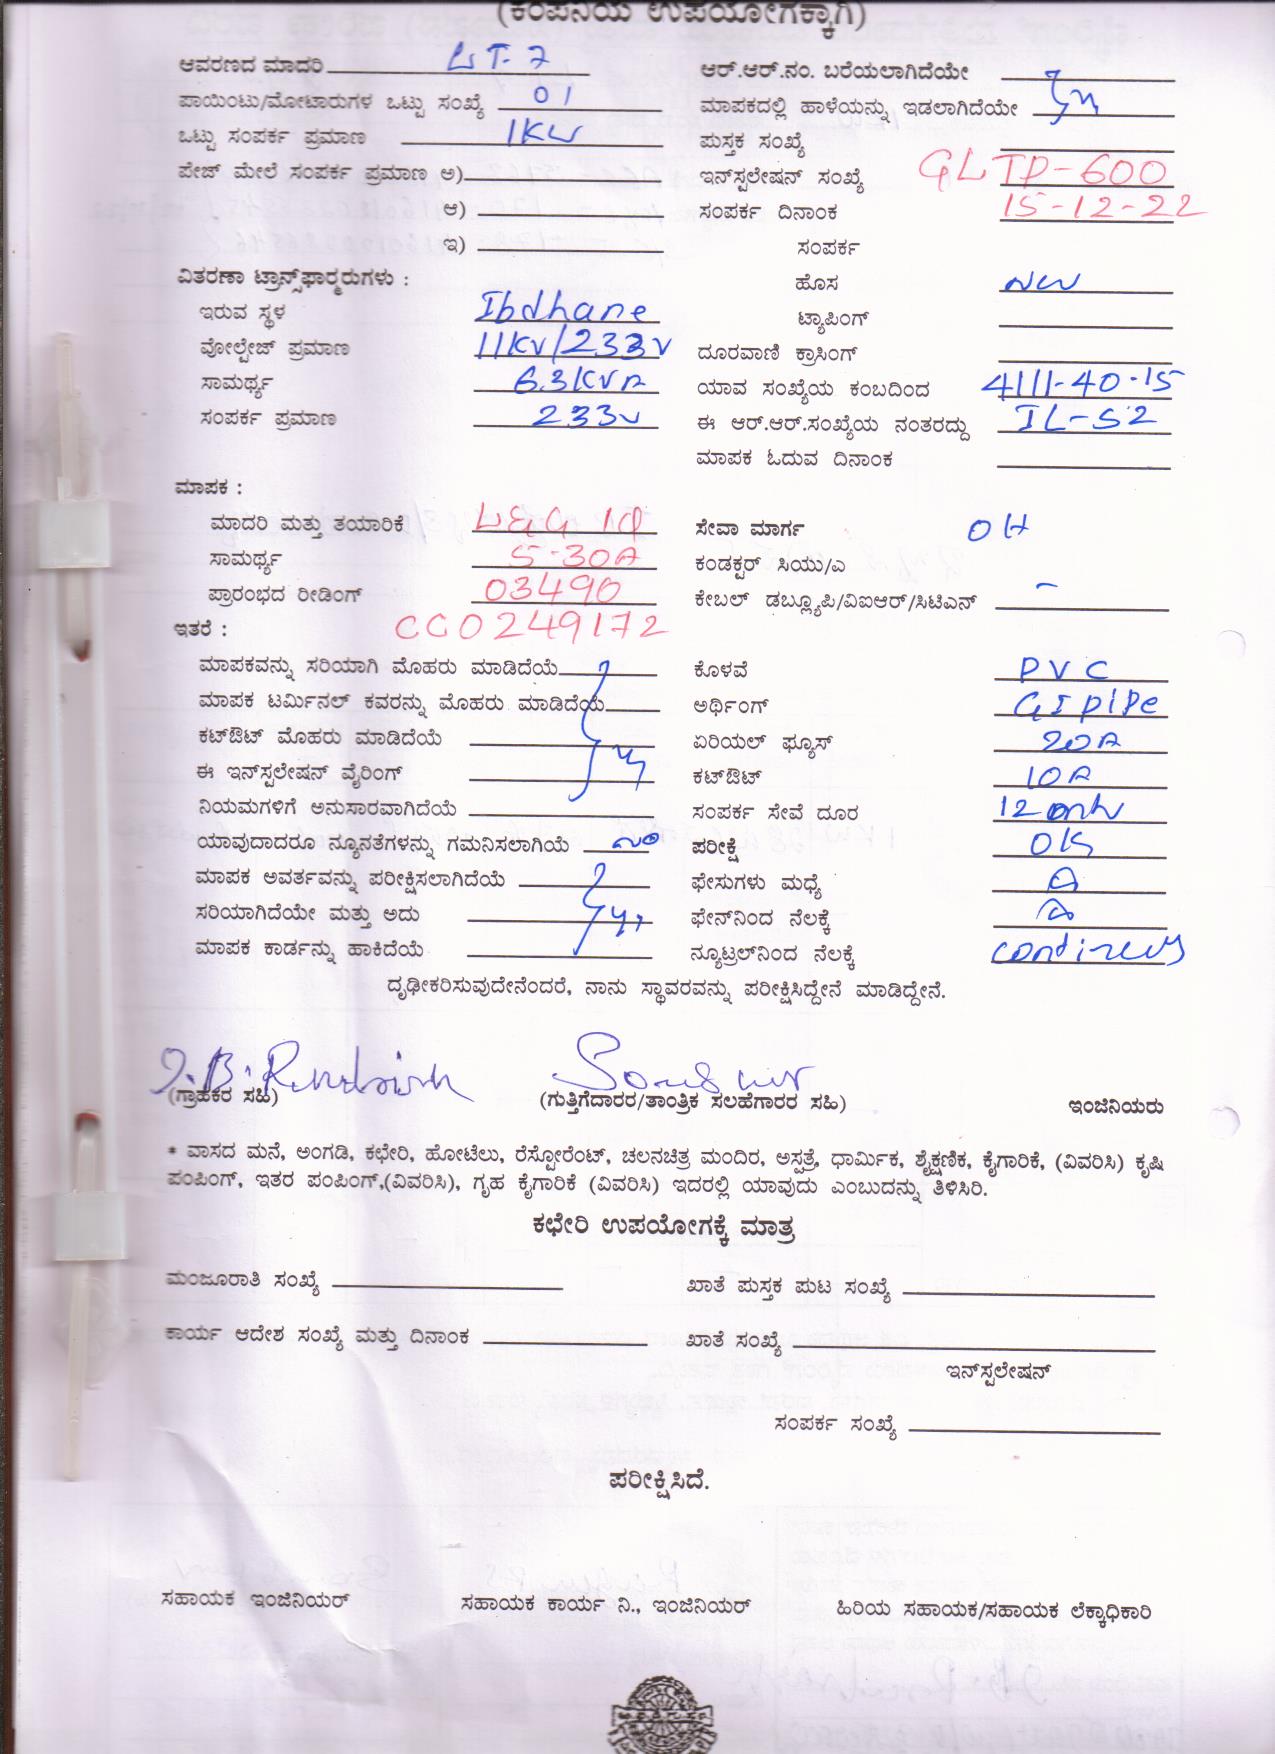 (ಕಂಪನಿಯ ಉಪಯೋಗಕ್ಕಾಗಿ)
ಆವರಣದ ಮಾದರಿ LT-7
ಆರ್.ಆರ್.ನಂ. ಬರೆಯಲಾಗಿದೆಯೇ
ಪಾಯಿಂಟು/ಮೋಟಾರುಗಳ ಒಟ್ಟು ಸಂಖ್ಯೆ 01
ಮಾಪಕದಲ್ಲಿ ಹಾಳೆಯನ್ನು ಇಡಲಾಗಿದೆಯೇ
ಒಟ್ಟು ಸಂಪರ್ಕ ಪ್ರಮಾಣ 1KW
ಪುಸ್ತಕ ಸಂಖ್ಯೆ
ಪೇಜ್ ಮೇಲೆ ಸಂಪರ್ಕ ಪ್ರಮಾಣ ಅ)
ಇನ್‌ಸ್ಟಲೇಷನ್ ಸಂಖ್ಯೆ GLTP-600
ಆ)
ಸಂಪರ್ಕ ದಿನಾಂಕ 15-12-22
ಇ)
ಸಂಪರ್ಕ
ವಿತರಣಾ ಟ್ರಾನ್ಸ್‌ಫಾರ್ಮರುಗಳು :
ಹೊಸ New
ಇರುವ ಸ್ಥಳ Ibdhane
ಟ್ಯಾಪಿಂಗ್
ವೋಲ್ಟೇಜ್ ಪ್ರಮಾಣ 11KV/233V
ದೂರವಾಣಿ ಕ್ರಾಸಿಂಗ್
ಸಾಮರ್ಥ್ಯ 63KVA
ಯಾವ ಸಂಖ್ಯೆಯ ಕಂಬದಿಂದ 4111-40-15
ಸಂಪರ್ಕ ಪ್ರಮಾಣ 233V
ಈ ಆರ್.ಆರ್.ಸಂಖ್ಯೆಯ ನಂತರದ್ದು IL-52
ಮಾಪಕ ಓದುವ ದಿನಾಂಕ
ಮಾಪಕ :
ಮಾದರಿ ಮತ್ತು ತಯಾರಿಕೆ L&G 1Φ
ಸೇವಾ ಮಾರ್ಗ OH
ಸಾಮರ್ಥ್ಯ 5-30A
ಕಂಡಕ್ಟರ್ ಸಿಯು/ಎ
ಪ್ರಾರಂಭದ ರೀಡಿಂಗ್ 03490
ಕೇಬಲ್ ಡಬ್ಲ್ಯೂಪಿ/ವಿಐಆರ್/ಸಿಟಿಎನ್ -
ಇತರೆ : CC0249172
ಮಾಪಕವನ್ನು ಸರಿಯಾಗಿ ಮೊಹರು ಮಾಡಿದೆಯೆ
ಕೊಳವೆ PVC
ಮಾಪಕ ಟರ್ಮಿನಲ್ ಕವರನ್ನು ಮೊಹರು ಮಾಡಿದೆಯೆ
ಅರ್ಥಿಂಗ್ GI pipe
ಕಟ್‌ಔಟ್ ಮೊಹರು ಮಾಡಿದೆಯೆ
ಏರಿಯಲ್ ಫ್ಯೂಸ್ 20A
ಈ ಇನ್‌ಸ್ಟಲೇಷನ್ ವೈರಿಂಗ್
ಕಟ್‌ಔಟ್ 10A
ನಿಯಮಗಳಿಗೆ ಅನುಸಾರವಾಗಿದೆಯೆ
ಸಂಪರ್ಕ ಸೇವೆ ದೂರ 12
ಯಾವುದಾದರೂ ನ್ಯೂನತೆಗಳನ್ನು ಗಮನಿಸಲಾಗಿಯೆ No
ಪರೀಕ್ಷೆ OK
ಮಾಪಕ ಅವರ್ತವನ್ನು ಪರೀಕ್ಷಿಸಲಾಗಿದೆಯೆ
ಫೇಸುಗಳು ಮಧ್ಯೆ
ಸರಿಯಾಗಿದೆಯೇ ಮತ್ತು ಅದು
ಫೇಸ್‌ನಿಂದ ನೆಲಕ್ಕೆ
ಮಾಪಕ ಕಾರ್ಡನ್ನು ಹಾಕಿದೆಯೆ
ನ್ಯೂಟ್ರಲ್‌ನಿಂದ ನೆಲಕ್ಕೆ
ದೃಢೀಕರಿಸುವುದೇನೆಂದರೆ, ನಾನು ಸ್ಥಾವರವನ್ನು ಪರೀಕ್ಷಿಸಿದ್ದೇನೆ ಮಾಡಿದ್ದೇನೆ.
(ಗ್ರಾಹಕರ ಸಹಿ) (ಗುತ್ತಿಗೆದಾರರ/ತಾಂತ್ರಿಕ ಸಲಹೆಗಾರರ ಸಹಿ) ಇಂಜಿನಿಯರು
* ವಾಸದ ಮನೆ, ಅಂಗಡಿ, ಕಛೇರಿ, ಹೋಟೆಲು, ರೆಸ್ಟೋರೆಂಟ್, ಚಲನಚಿತ್ರ ಮಂದಿರ, ಅಸ್ಪತ್ರೆ, ಧಾರ್ಮಿಕ, ಶೈಕ್ಷಣಿಕ, ಕೈಗಾರಿಕೆ, (ವಿವರಿಸಿ) ಕೃಷಿ
ಪಂಪಿಂಗ್, ಇತರ ಪಂಪಿಂಗ್,(ವಿವರಿಸಿ), ಗೃಹ ಕೈಗಾರಿಕೆ (ವಿವರಿಸಿ) ಇದರಲ್ಲಿ ಯಾವುದು ಎಂಬುದನ್ನು ತಿಳಿಸಿರಿ.
ಕಛೇರಿ ಉಪಯೋಗಕ್ಕೆ ಮಾತ್ರ
ಮಂಜೂರಾತಿ ಸಂಖ್ಯೆ
ಖಾತೆ ಪುಸ್ತಕ ಪುಟ ಸಂಖ್ಯೆ
ಕಾರ್ಯ ಆದೇಶ ಸಂಖ್ಯೆ ಮತ್ತು ದಿನಾಂಕ
ಖಾತೆ ಸಂಖ್ಯೆ
ಇನ್‌ಸ್ಟಲೇಷನ್
ಸಂಪರ್ಕ ಸಂಖ್ಯೆ
ಪರೀಕ್ಷಿಸಿದೆ.
ಸಹಾಯಕ ಇಂಜಿನಿಯರ್ ಸಹಾಯಕ ಕಾರ್ಯ ನಿ., ಇಂಜಿನಿಯರ್ ಹಿರಿಯ ಸಹಾಯಕ/ಸಹಾಯಕ ಲೆಕ್ಕಾಧಿಕಾರಿ